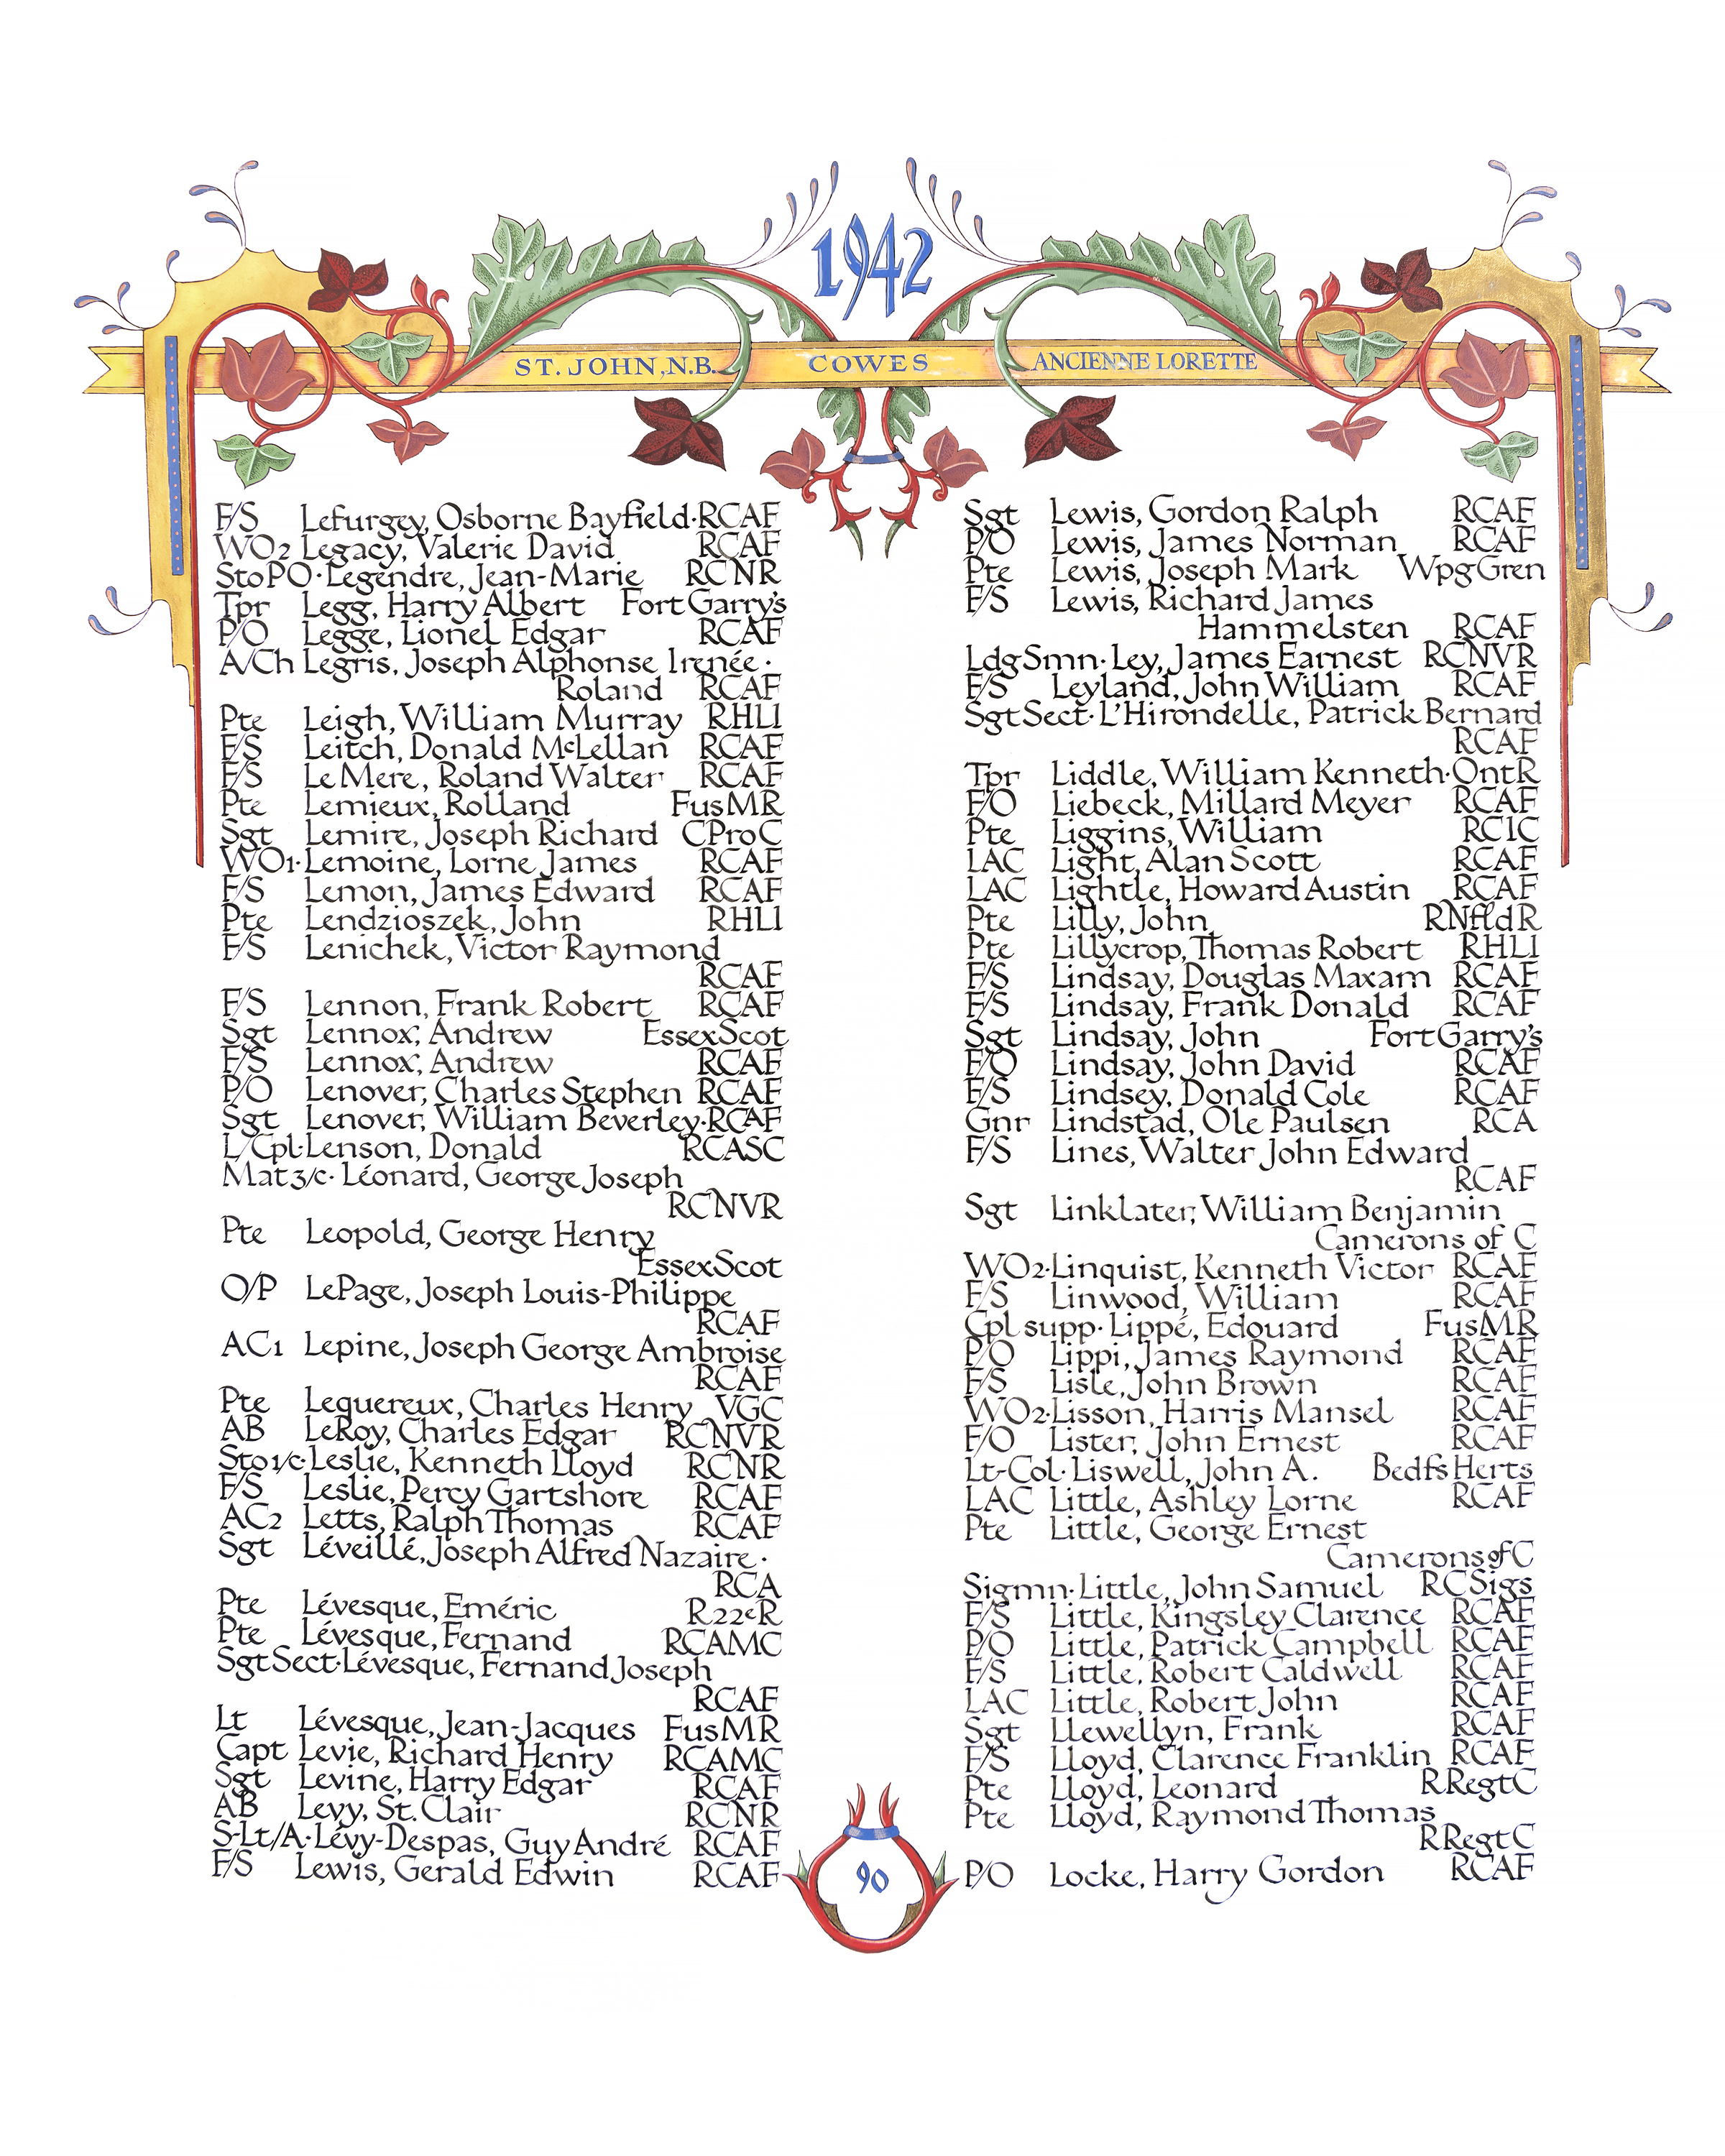 1942
ST. JOHN, N.B. COWES ANCIENNE LORETTE
F/S Lefurgey, Osborne Bayfield·RCAF
WO2 Legacy, Valerie David RCAF
StoPO·Legendre, Jean-Marie RCNR
Tpr Legg, Harry Albert Fort Garry's
P/O Legge, Lionel Edgar RCAF
A/Ch Legris, Joseph Alphonse Irenée·
Roland RCAF
Pte Leigh, William Murray RHLI
F/S Leitch, Donald McLellan RCAF
F/S Le Mere, Roland Walter RCAF
Pte Lemieux, Rolland FusMR
Sgt Lemire, Joseph Richard CProC
WO1·Lemoine, Lorne James RCAF
F/S Lemon, James Edward RCAF
Pte Lendzioszek, John RHLI
F/S Lenichek, Victor Raymond
RCAF
F/S Lennon, Frank Robert RCAF
Sgt Lennox, Andrew EssexScot
F/S Lennox, Andrew RCAF
P/O Lenover, Charles Stephen RCAF
Sgt Lenover, William Beverley·RCAF
L/Cpl·Lenson, Donald RCASC
Mat3/c·Léonard, George Joseph
RCNVR
Pte Leopold, George Henry
EssexScot
O/P LePage, Joseph Louis-Philippe
RCAF
AC1 Lepine, Joseph George Ambroise
RCAF
Pte Lequereux, Charles Henry VGC
AB LeRoy, Charles Edgar RCNVR
Sto1/c·Leslie, Kenneth Lloyd RCNR
F/S Leslie, Percy Gartshore RCAF
AC2 Letts, Ralph Thomas RCAF
Sgt Léveillé, Joseph Alfred Nazaire·
RCA
Pte Lévesque, Eméric R22eR
Pte Lévesque, Fernand RCAMC
SgtSect·Lévesque, Fernand Joseph
RCAF
Lt Lévesque, Jean-Jacques FusMR
Capt Levie, Richard Henry RCAMC
Sgt Levine, Harry Edgar RCAF
AB Levy, St. Clair RCNR
S-Lt/A·Lévy-Despas, Guy André RCAF
F/S Lewis, Gerald Edwin RCAF
Sgt Lewis, Gordon Ralph RCAF
P/O Lewis, James Norman RCAF
Pte Lewis, Joseph Mark WpgGren
F/S Lewis, Richard James
Hammelsten RCAF
LdgSmn·Ley, James Earnest RCNVR
F/S Leyland, John William RCAF
SgtSect·L'Hirondelle, Patrick Bernard
RCAF
Tpr Liddle, William Kenneth·OntR
F/O Liebeck, Millard Meyer RCAF
Pte Liggins, William RCIC
LAC Light, Alan Scott RCAF
LAC Lightle, Howard Austin RCAF
Pte Lilly, John RNfldR
Pte Lillycrop, Thomas Robert RHLI
F/S Lindsay, Douglas Maxam RCAF
F/S Lindsay, Frank Donald RCAF
Sgt Lindsay, John Fort Garry's
F/O Lindsay, John David RCAF
F/S Lindsey, Donald Cole RCAF
Gnr Lindstad, Ole Paulsen RCA
F/S Lines, Walter John Edward
RCAF
Sgt Linklater, William Benjamin
Camerons of C
WO2·Linquist, Kenneth Victor RCAF
F/S Linwood, William RCAF
Cpl supp·Lippé, Edouard FusMR
P/O Lippi, James Raymond RCAF
F/S Lisle, John Brown RCAF
WO2·Lisson, Harris Mansel RCAF
F/O Lister, John Ernest RCAF
Lt-Col·Liswell, John A. BedfsHerts
LAC Little, Ashley Lorne RCAF
Pte Little, George Ernest
Camerons of C
Sigmn·Little, John Samuel RCSigs
F/S Little, Kingsley Clarence RCAF
P/O Little, Patrick Campbell RCAF
F/S Little, Robert Caldwell RCAF
LAC Little, Robert John RCAF
Sgt Llewellyn, Frank RCAF
F/S Lloyd, Clarence Franklin RCAF
Pte Lloyd, Leonard RRegtC
Pte Lloyd, Raymond Thomas
RRegtC
P/O Locke, Harry Gordon RCAF
90